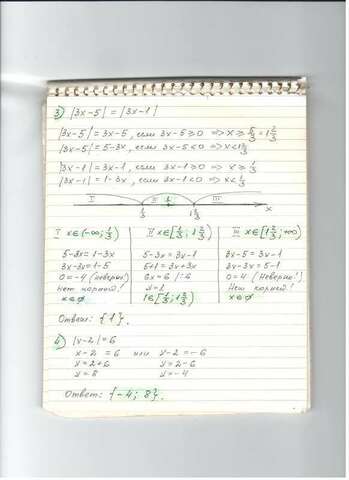 3) |3x-5| = |3x-1|
|3x-5| = 3x-5, если 3x-5≥0 ⇒ x ≥ 5/3 = 1 2/3
|3x-5| = 5-3x, если 3x-5<0 ⇒ x<1 2/3
|3x-1| = 3x-1, если 3x-1≥0 ⇒ x ≥ 1/3
|3x-1| = 1-3x, если 3x-1<0 ⇒ x < 1/3
I II III
1/3 1 2/3 x
I x∈(-∞; 1/3) II x∈[1/3; 1 2/3) III x∈[1 2/3; +∞)
5-3x = 1-3x 5-3x = 3x-1 3x-5 = 3x-1
3x-3x = 1-5 5+1 = 3x+3x 3x-3x = 5-1
0 = -4 (неверно!) 6x = 6 |:6 0 = 4 (Неверно!)
Нет корней! x=1 Нет корней!
x∈∅ 1∈[1/3; 1 2/3) x∈∅
Ответ: {1}.
4) |x-2| = 6
x-2 = 6 или x-2 = -6
x = 2+6 x = 2-6
x = 8 x = -4
Ответ: {-4; 8}.